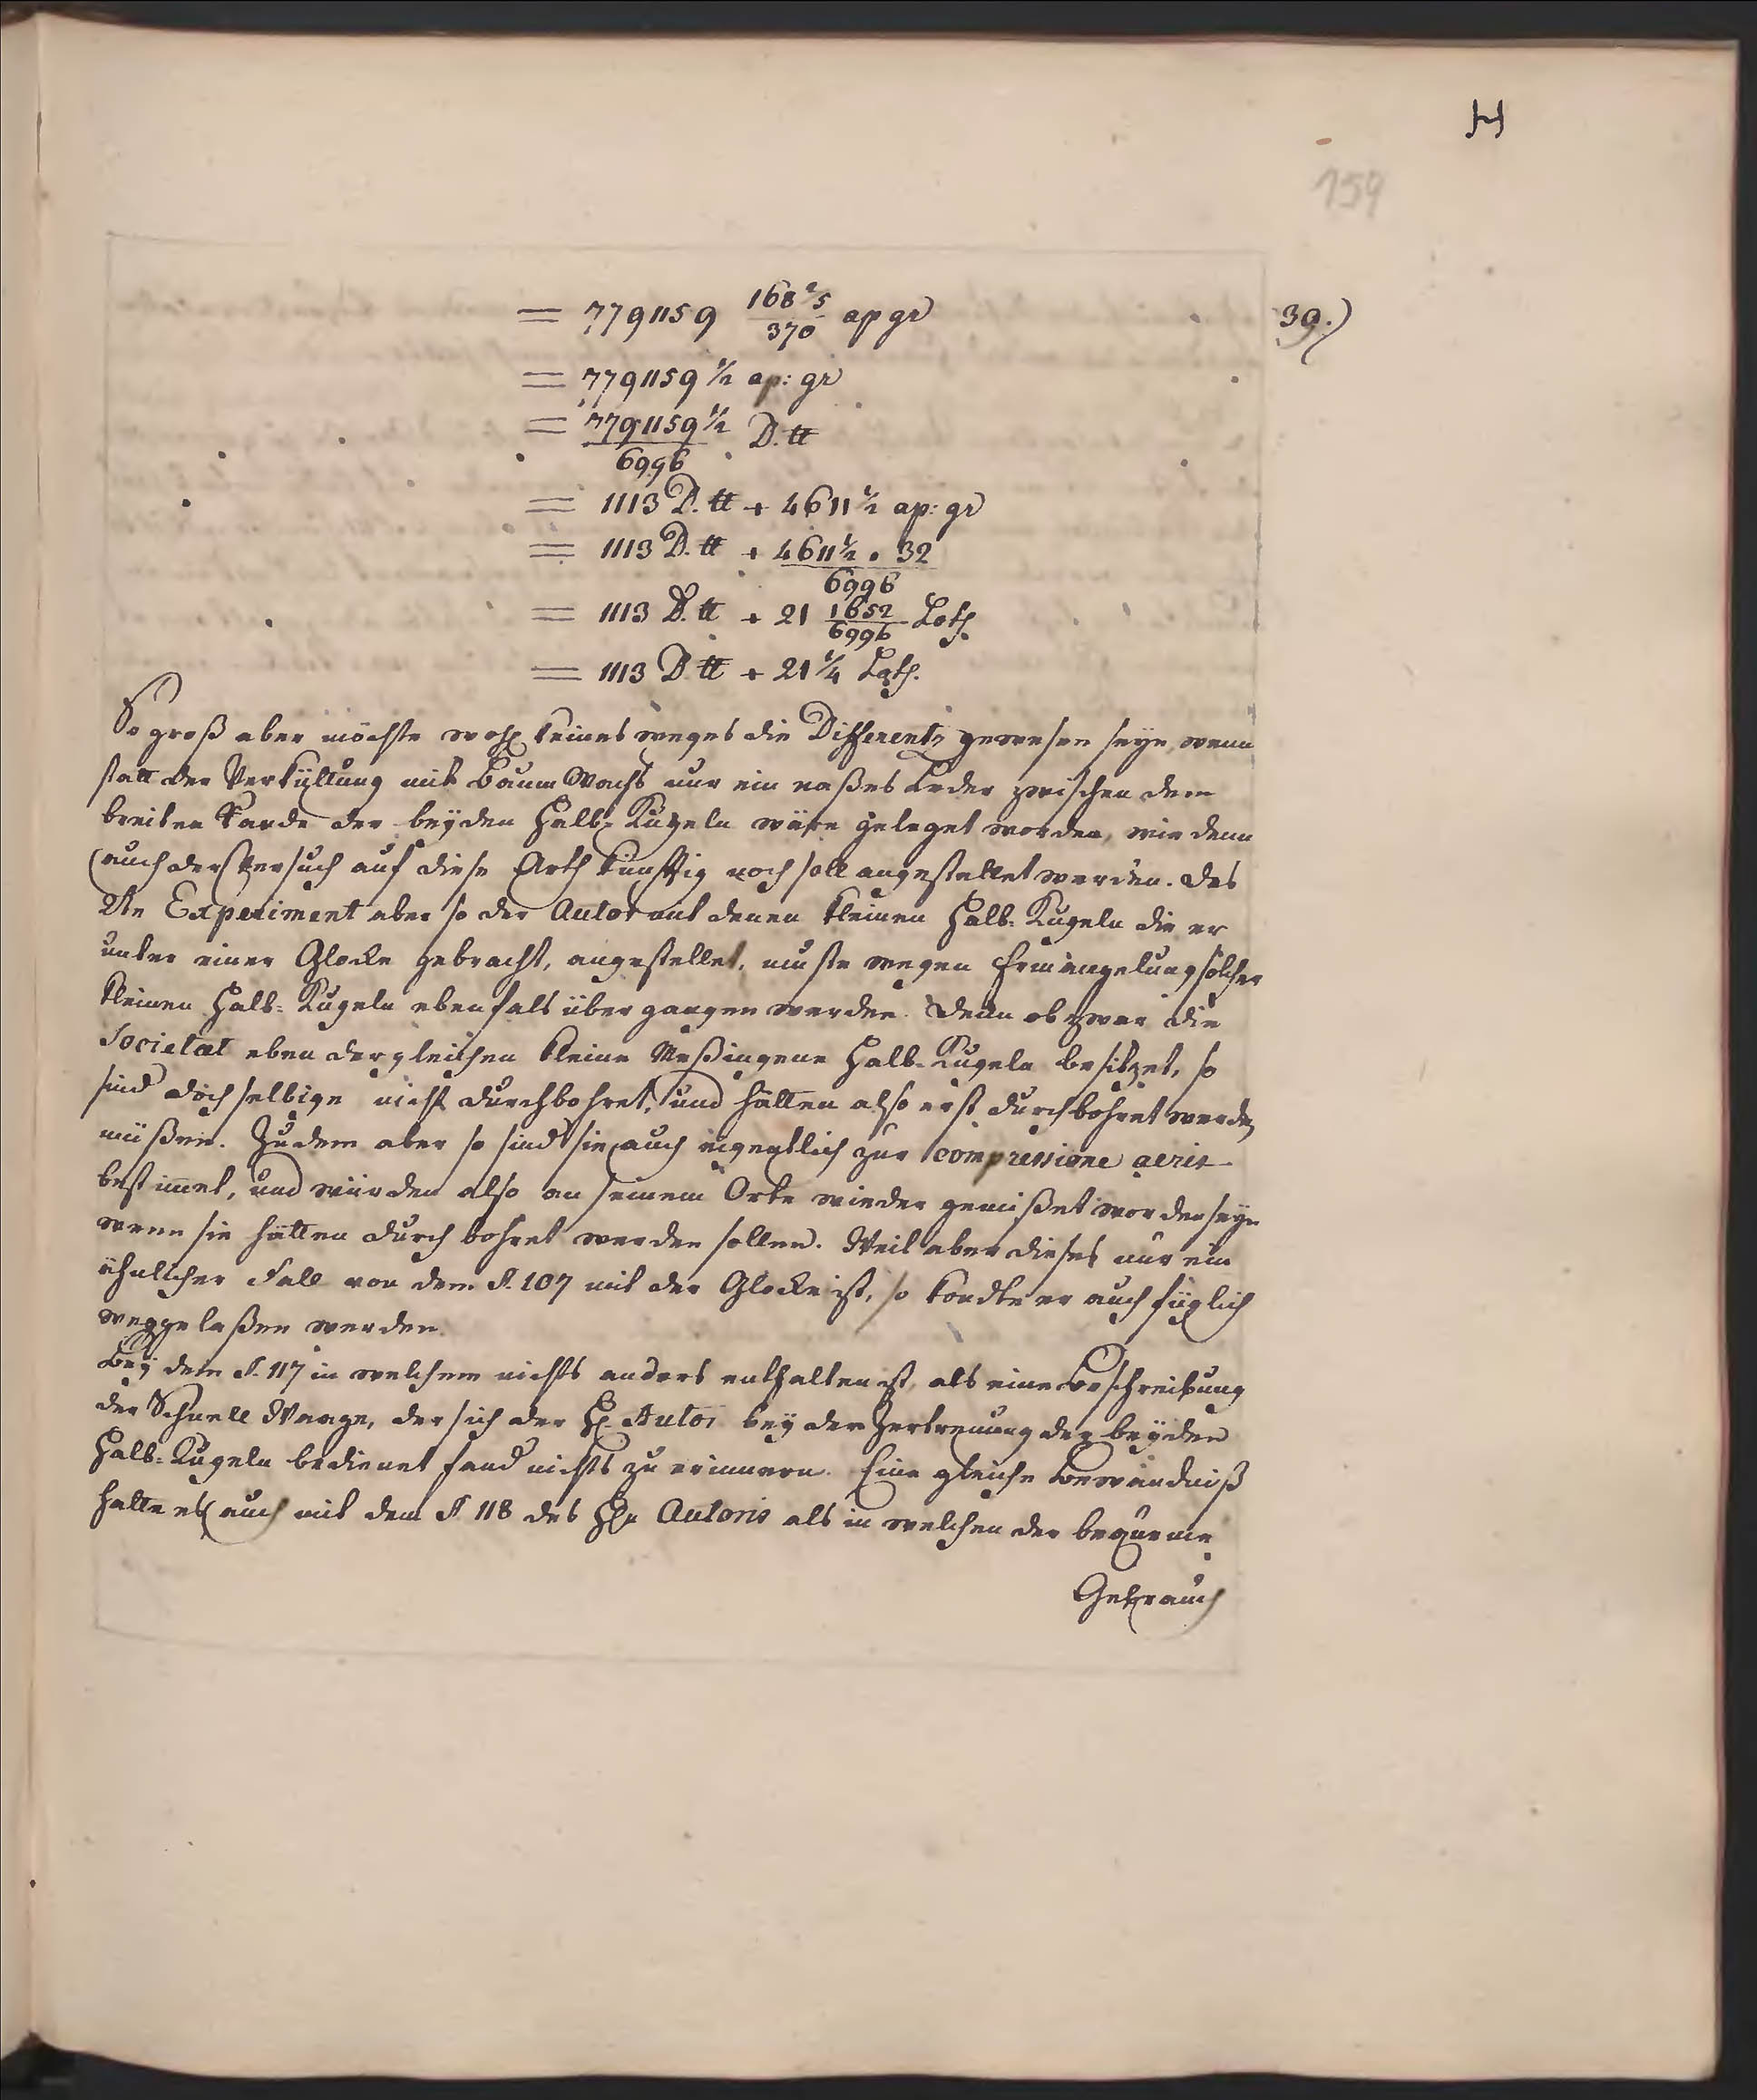 H
159
39.)
= 7791159 168 2/5 / 370 ap gr
= 7791159 1/2 ap: gr
= 7791159 1/2 / 6996 D. ℔
= 1113 D. ℔ + 4611 1/2 ap: gr
= 1113 D. ℔ + 4611 1/2 . 32 / 6996
= 1113 D. ℔ + 21 1652/6996 Loth
= 1113 D. ℔ + 21 1/4 Loth.
So groß aber möchte wohl keines weges die Differentz gewesen seyn, wenn
statt der Verküttung mit Baum Wachs nur ein naßes Leder zwischen dem
breiten Rande der beyden Halb-Kugeln wäre geleget worden, wie denn
auch der Versuch auf diese Arth künfftig noch soll angestellet werden. Das
2te Experiment aber so der Autor mit denen kleinen Halb-Kugeln die er
unter einer Glocke gebracht, angestellet, muste wegen Ermangelung solcher
kleinen Halb-Kugeln ebenfals übergangen werden. Denn ob zwar die
Societæt eben dergleichen kleine Meßingene Halb-Kugeln besitzet, so
sind doch selbige nicht durchbohret, und hätten also erst durchbohret werden
müßen. Zudem aber so sind sie auch eigentlich zur compressione aeris
bestimmet, und würden also an seinem Orte wieder gemißet worden seyn
wenn sie hätten durchbohret werden sollen. Weil aber dieses nur ein
ähnlicher Fall von dem §. 107 mit der Glocke ist, so kondte er auch füglich
weggelaßen werden.
Bey dem §. 117 in welchem nichts anders enthalten ist, als eine Beschreibung
der Schnell Waage, der sich der H. Autor bey der Zertrenung der beyden
Halb-Kugeln bedienet fand nichts zu erinnern. Eine gleiche Bewandniß
hatte es auch mit dem § 118 des Hn Autoris als in welchen der bequeme
Gebrauch